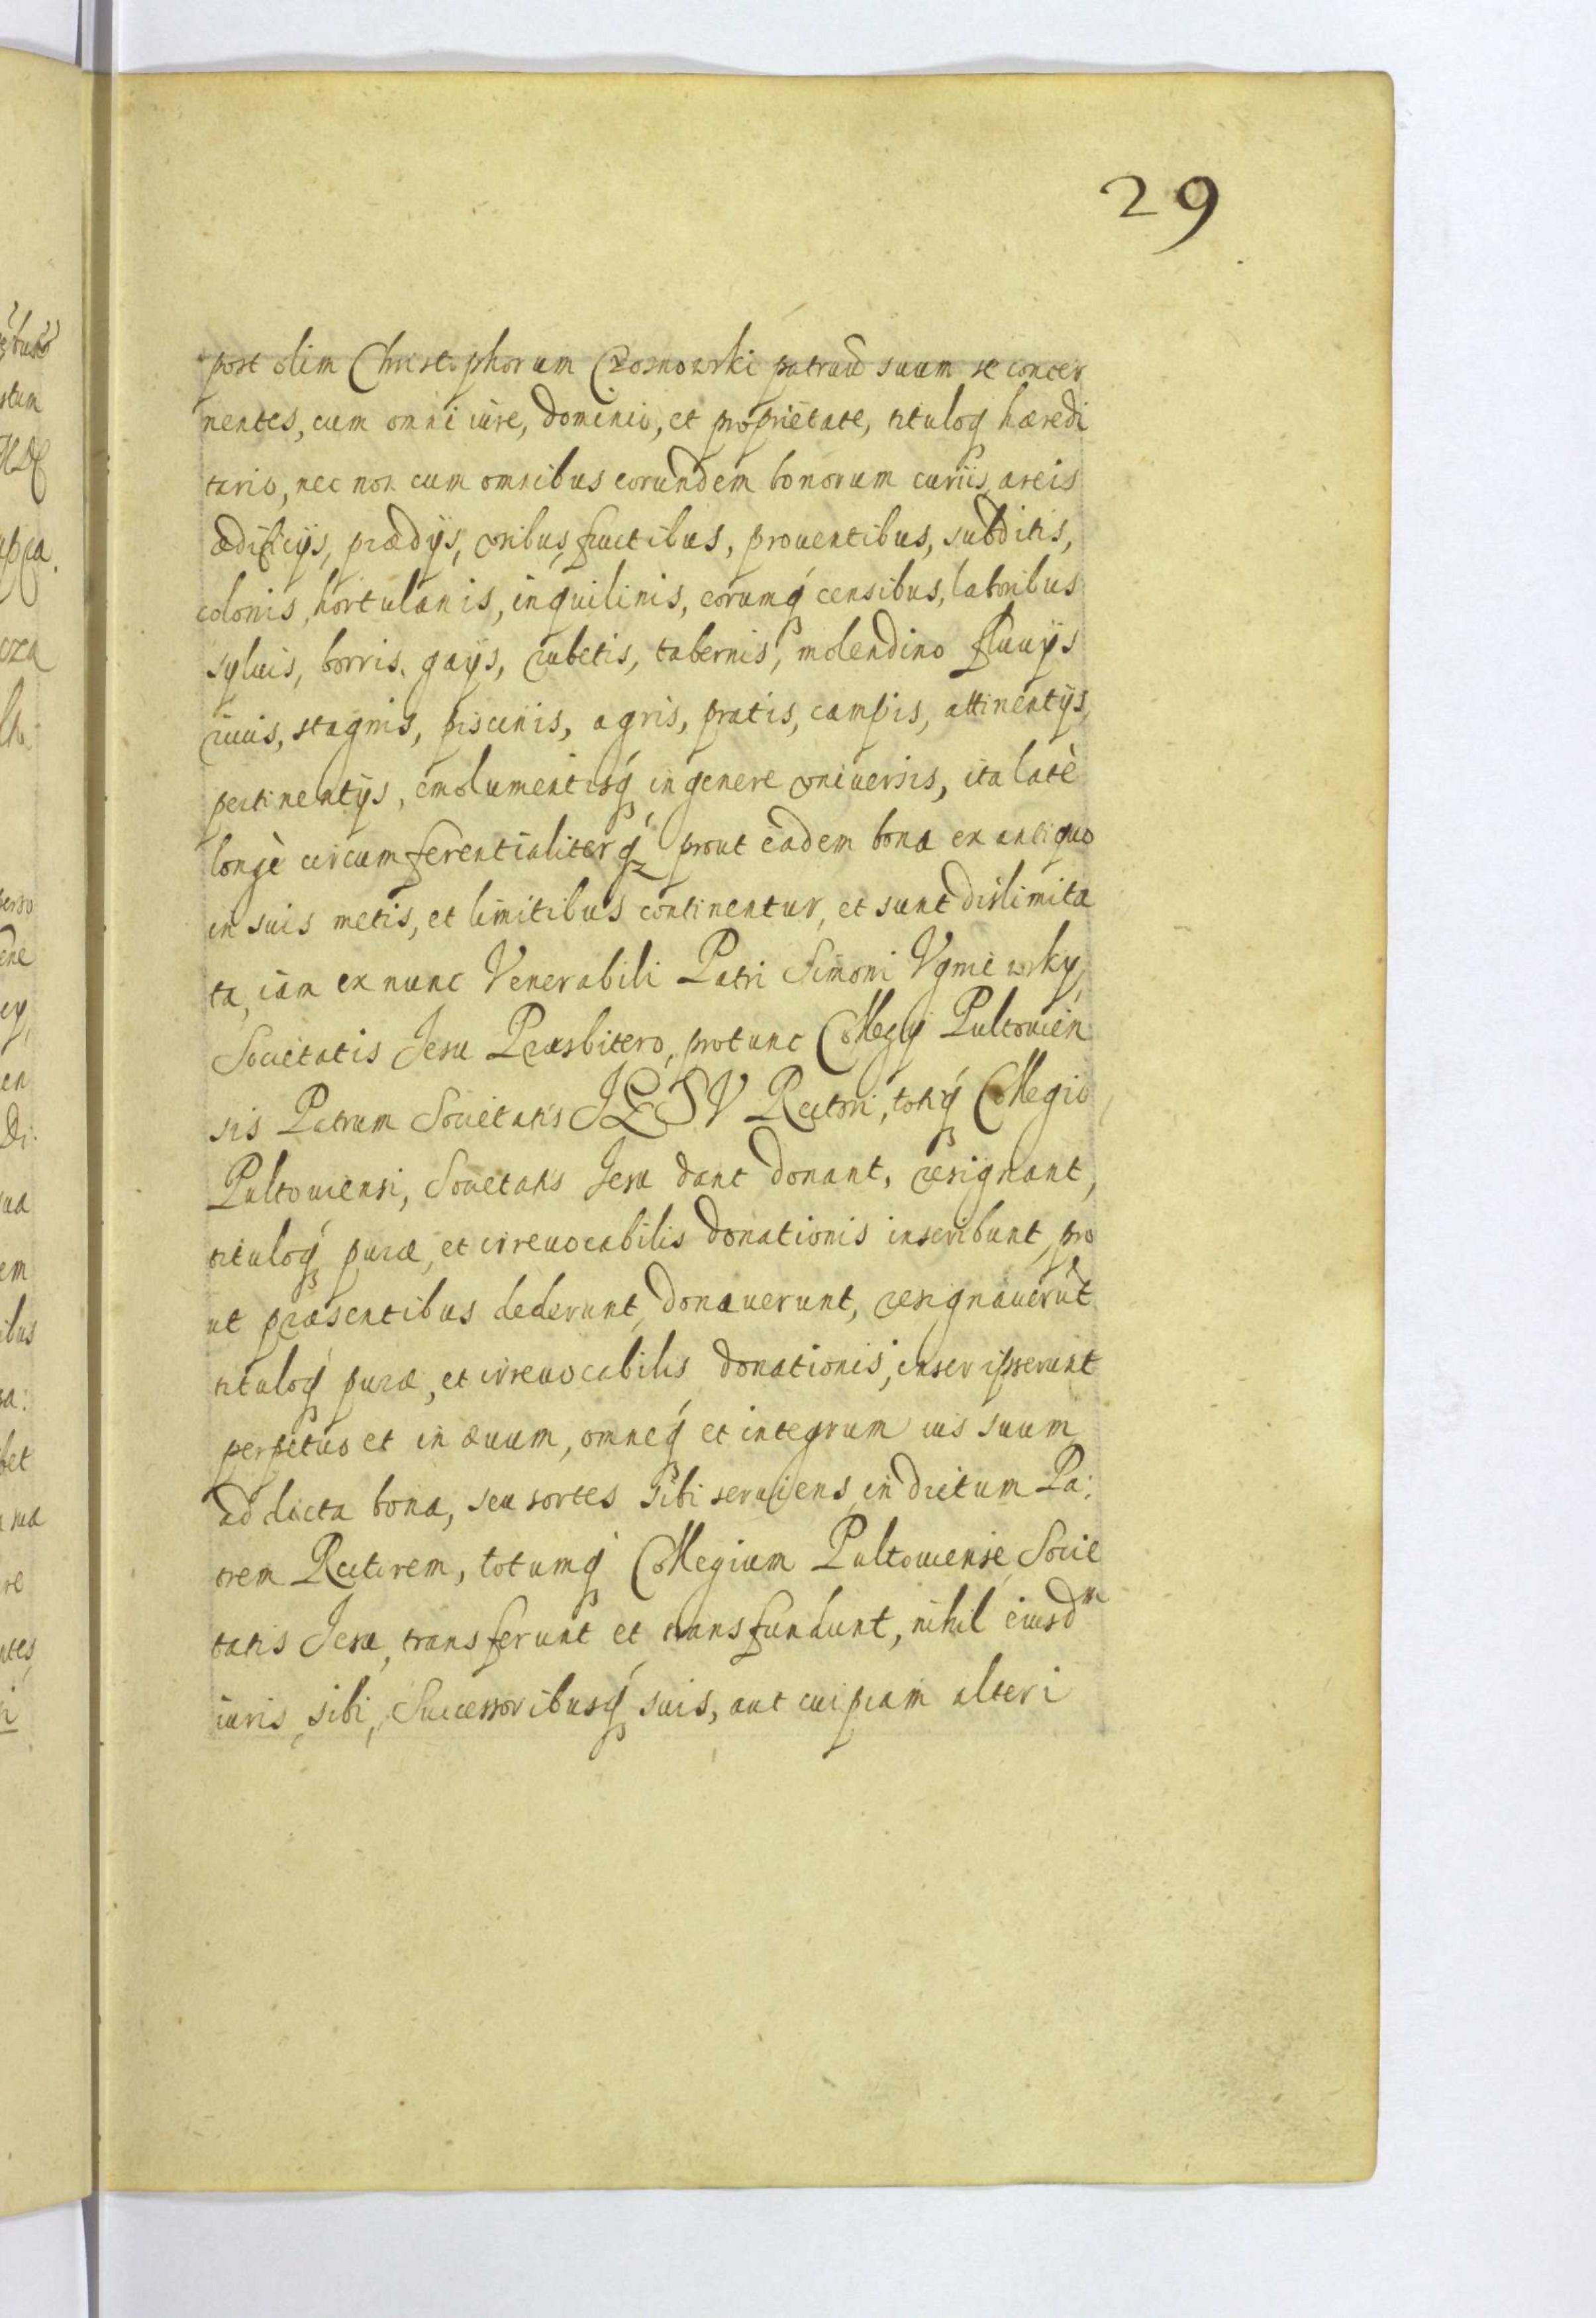 29
post olim Christophorum Czosnowski patruũ suum se concer
nentes, cum omni iure, dominio, et proprietate, tituloq́ hæredi
tario, nec non cum omnibus eorundem bonorum curiis, areis
ædificijs, prædijs, fructibus, prouentibus, subditis,
colonis, hortulanis, inquilinis, eorumq́ censibus, laboribus
syluis, borris, gays, rubetis, tabernis, molendino fluuijs
riuis, stagnis, piscinis, agris, pratis, campis, attinentijs,
pertinentijs, emolumentisq́ in genere vniuersis, ita latè
longè circumferentialiterq́ prout eadem bona ex antiquo
in suis metis, et limitibus continentur, et sunt dislimita
ta, iam ex nunc Venerabili Patri Simoni
Societatis Jesu Præsbitero, protunc Collegij Pultouien
sis Patrum Societatis JESV Rectori, totiq́ Collegio
Pultouiensi, Societatis Jesu dant donant, resignant,
tituloq́ puræ, et irreuocabilis donationis inscribunt, pro
ut præsentibus dederunt, donauerunt, resignauerũt
tituloq́ puræ, et irreuocabilis donationis, inscripserunt
perpetuo et in æuum, omneq́ et integrum ius suum
ad dicta bona, seu sortes sibi seruiens, in dictum Pa:
trem Rectorem, totumq́ Collegium Pultouiense Socie
tatis Jesu, transferunt et transfundunt, nihil eiusdᵐ
iuris, sibi, Successoribusq́ suis, aut cuipiam alteri